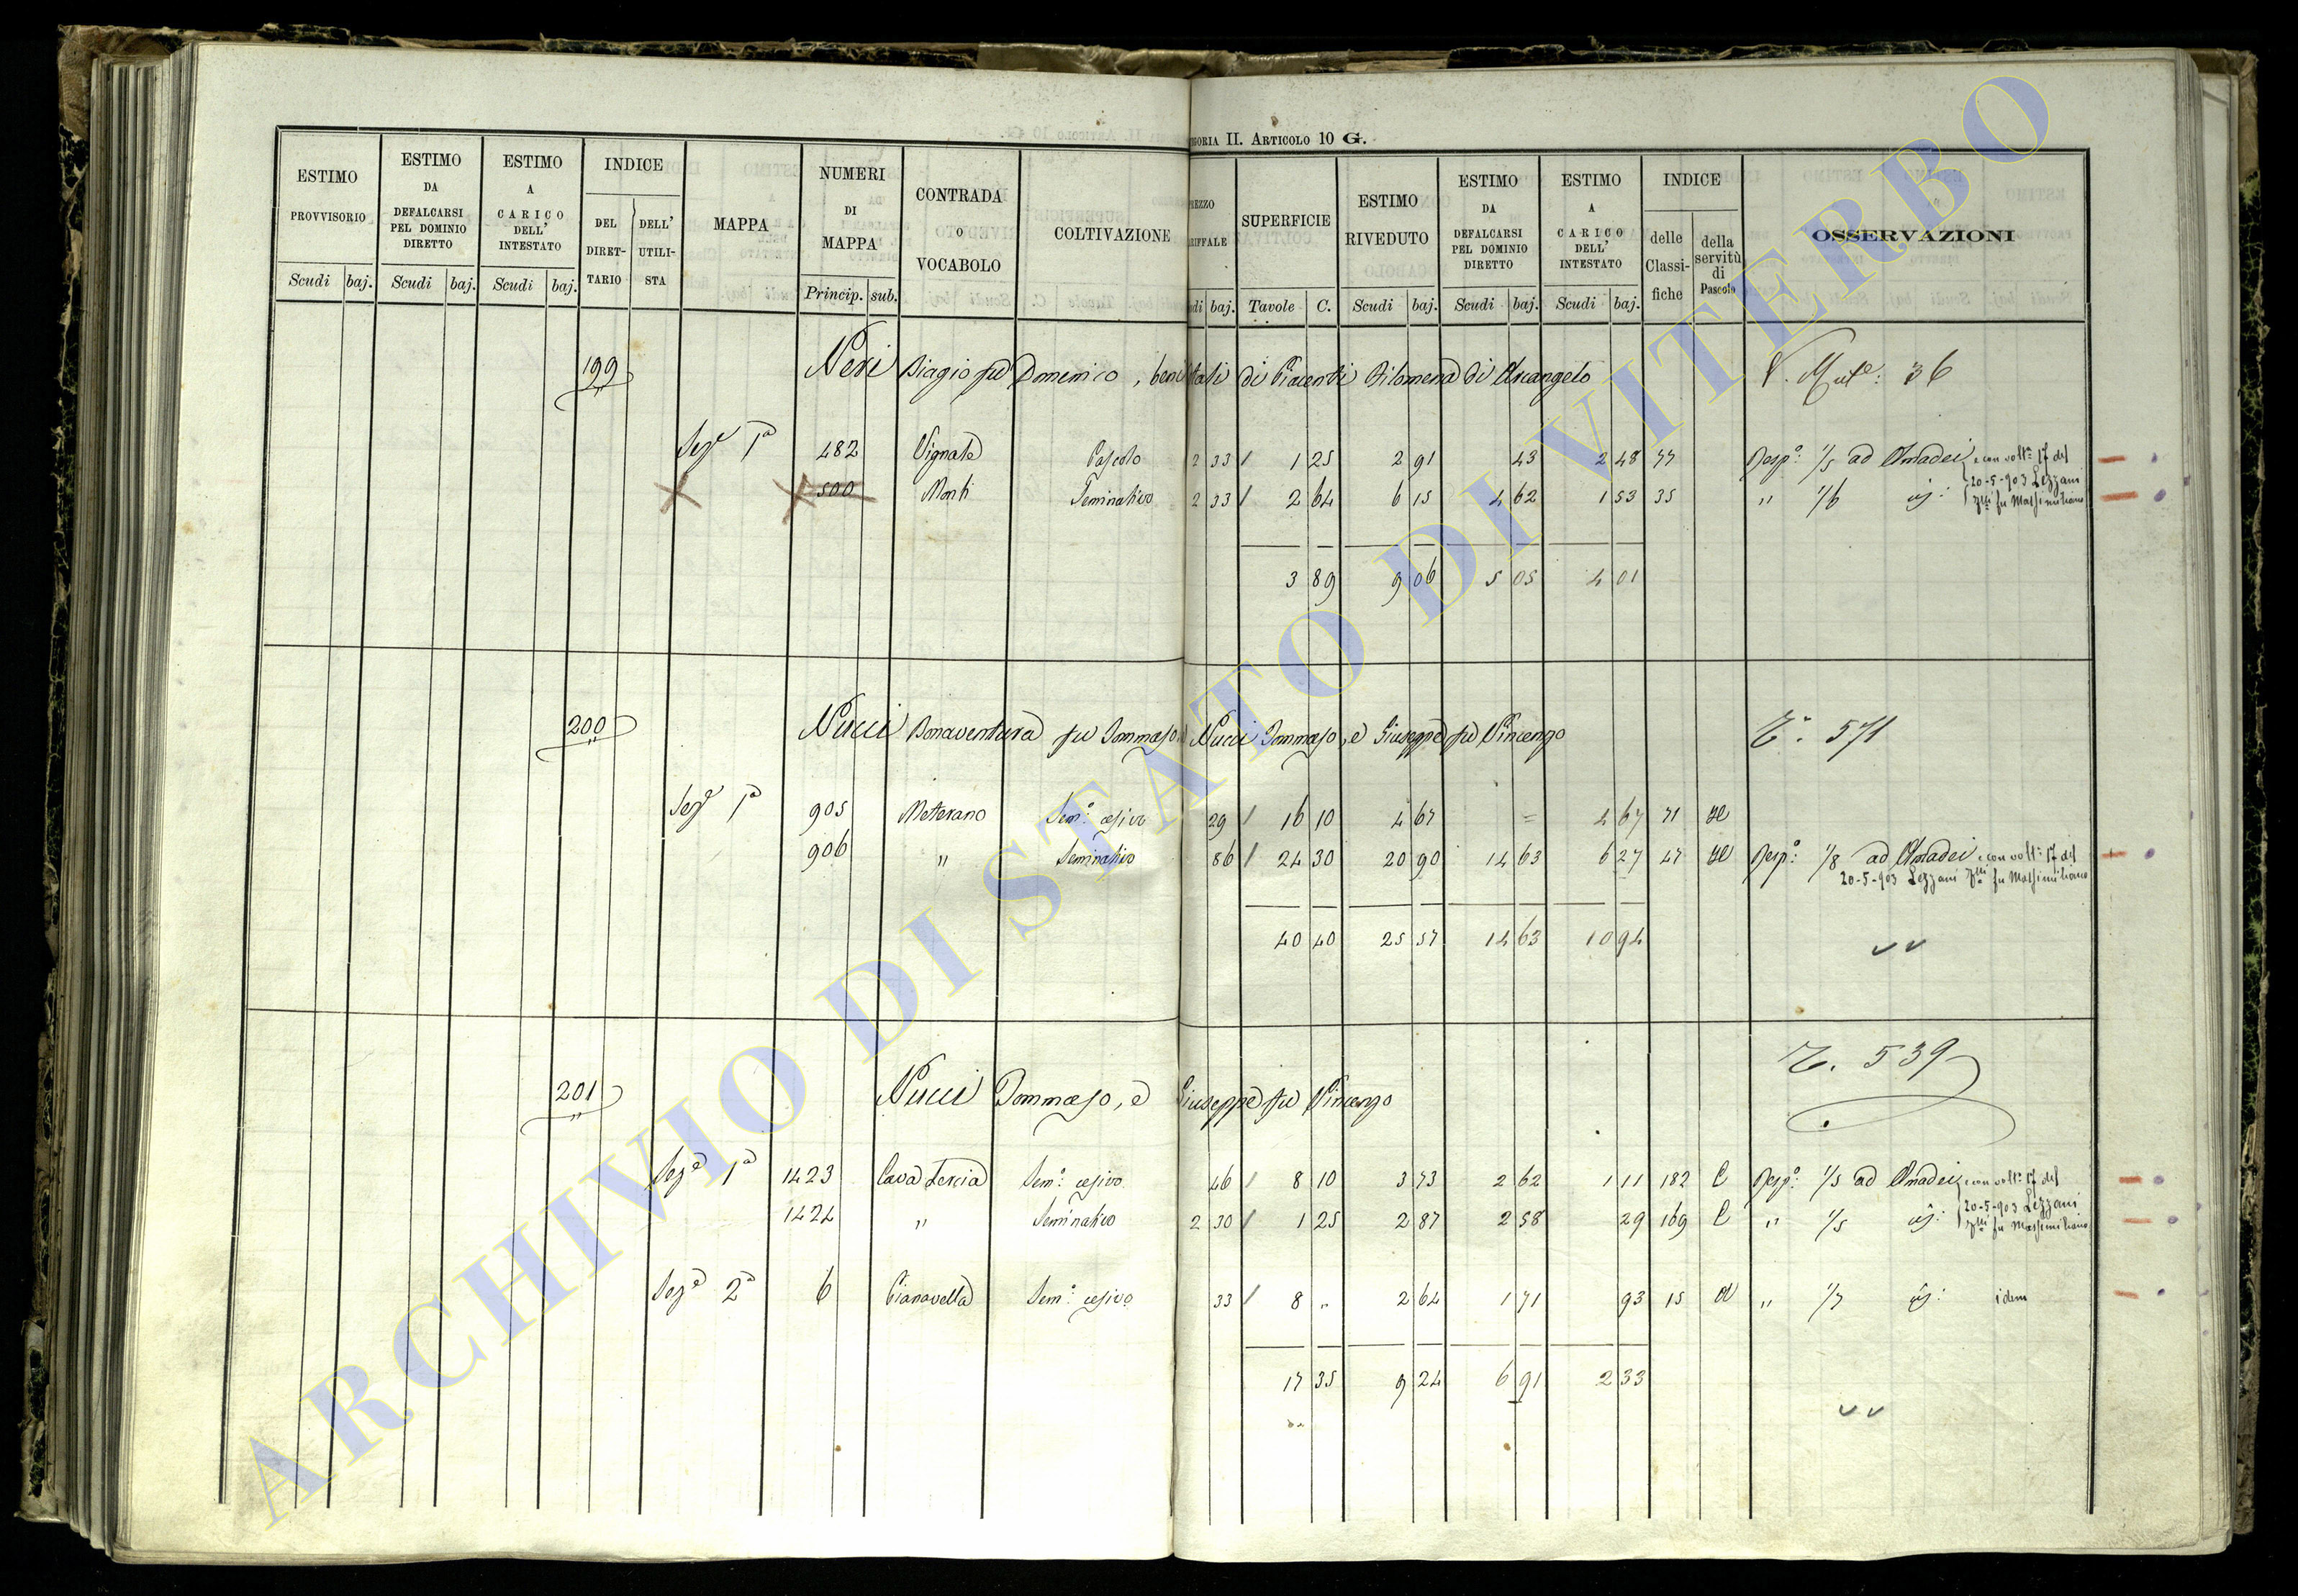 CATEGORIA II. ARTICOLO 10 G.
ESTIMO PROVVISORIO Scudi baj.
ESTIMO DA DEFALCARSI PEL DOMINIO DIRETTO Scudi baj.
ESTIMO A CARICO DELL' INTESTATO Scudi baj.
INDICE DEL DIRET-TARIO DELL' UTILI-STA
MAPPA
NUMERI DI MAPPA Princip. sub.
CONTRADA O VOCABOLO
COLTIVAZIONE
PREZZO TARIFFALE Scudi baj.
SUPERFICIE Tavole C.
ESTIMO RIVEDUTO Scudi baj.
ESTIMO DA DEFALCARSI PEL DOMINIO DIRETTO Scudi baj.
ESTIMO A CARICO DELL' INTESTATO Scudi baj.
INDICE delle Classi-fiche della servitù di Pascolo
OSSERVAZIONI
199 Neri Biagio fu Domenico, beni dotali di Piacenti Filomena di Arcangelo 36
Seze 1a 482 Vignale Pascolo 2 33 1 25 2 91 43 2 48 77 Risp: 1/5 ad Amadei e con volt: 17 del
500 Monti Seminativo 2 33 2 64 6 15 4 62 1 53 35 " 1/6 20-5-903 Lezzani
flli fu Massimiliano
3 89 9 06 5 05 4 01
200 Nucci Bonaventura fu Tommaso, Nucci Tommaso, e Giuseppe fu Vincenzo 571
Sezе 1a 905 Meterano Sem: cesivo 29 16 10 4 67 = 4 67 71
906 " Seminativo 86 24 30 20 90 14 63 6 27 47 Risp: 1/8 ad Amadei e con volt: 17 del
20-5-903 Lezzani flli fu Massimiliano
40 40 25 57 14 63 10 94
201 Nucci Tommaso, e Giuseppe fu Vincenzo 539
Seze 1a 1423 Cava Sem: cesivo 46 8 10 3 73 2 62 1 11 182 C Risp: 1/5 ad Amadei e con volt: 17 del
1424 " Seminativo 2 30 1 25 2 87 2 58 29 169 C " 1/5 20-5-903 Lezzani
flli fu Massimiliano
Seze 2a 6 Pianavella Sem: cesivo 33 8 " 2 64 1 71 93 15 " 1/7 idem
17 35 9 24 6 91 2 33
ARCHIVIO DI STATO DI VITERBO